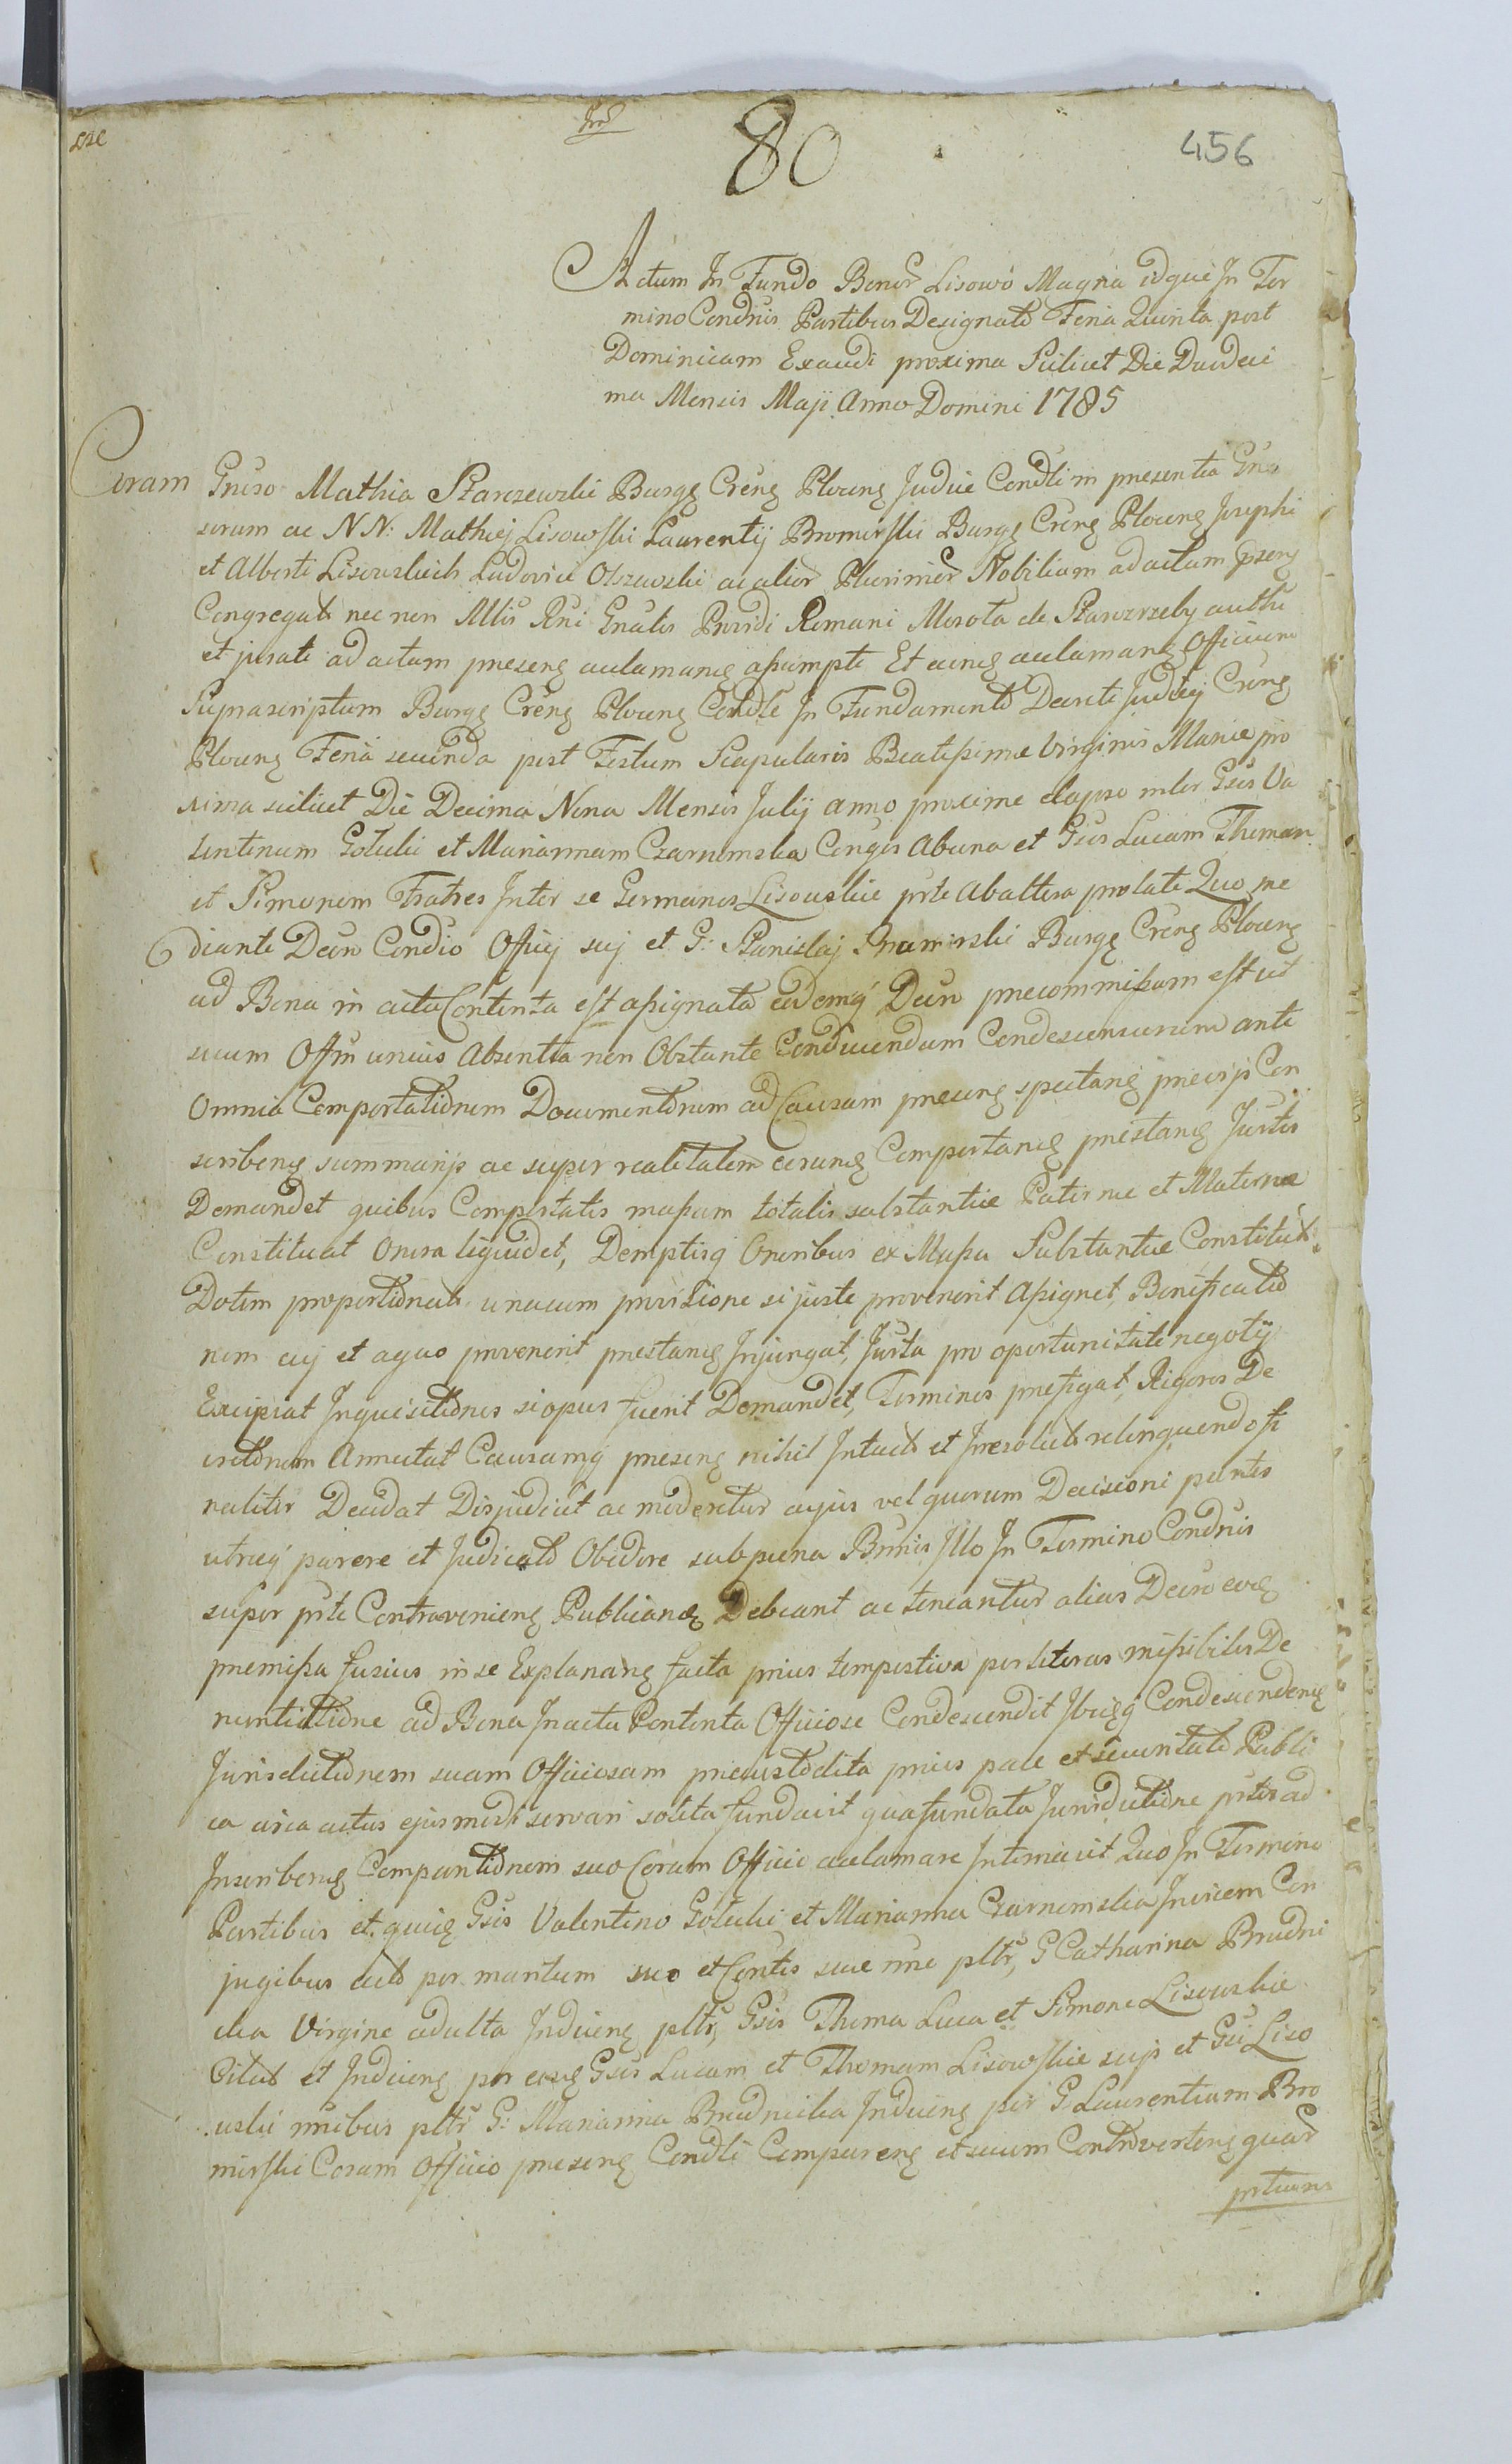 80
456
Actum In Fundo Bonor Lisowo Magna idque In Ter
mino Condnis Partibus Designato Feria Quinta post
Dominicam Exaudi proxima Scilicet Die Duodeci
ma Mensis Maji Anno Domini 1785
Coram Gnroso Mathia Starczewski Burgg Creng Ploceng Judice Condli in presentia Gnro
sorum ac NN: Mathiej Lisowski Laurentij Bromirski Burgg Creng Plocens Josephi
et Alberti Lisowskich Ludovici Olszewski ac alior Plurimor Nobilium ad actum psens
Congregat nec non Mlis Rni Gnalis Providi Romani Mrosta de Starozrzeby authti
et jurati ad actum presens aclamang assumpti Et acing aclamang Officium
Suprascriptum Burgg Creng Plocens Condle In Fundamento Decreti Judicij Creng
Plocens Feria secunda post Festum Scapularis Beatissimae Virginis Mariae pro
xima scilicet Die Decima Nona Mensis Julij anno proxime elapso inter Gsos Va
lentinum Gotulii et Mariannam Czarnomska Conges Ab una et Gsos Lucam Thomam
et Simonem Fratres Inter se Germanos Lisowskie prte ab altera prolati Quo me
diante Decreto Condio Officij sui et G: Stanislaj Bromirski Burgg Creng Plocens
ad Bona in actu Contenta est assignata eodemq Decreto precommissum est ut
suum Offm unius Absentia non Obstante Conducendum Condescensurum ante
Omnia Comportationem Documentorum ad Causam presens spectang precisis Con
scribens summarijs ac super realitatem eorung Comportang prestang Jurtis
Demandet quibus Comportatis massam totalis substantiae Paternae et Maternae
Constituat Onera liquidet, Demptisq Oneribus ex Massa Substantiae Constitut
Dotem proportionat unacum provisione si juste provenerit Assignet, Bonificatio
nem cuj et a quo provenerit prestang Injungat, Jurta pro oportunitate negotij
Excipiat Inquisitiones si opus fuerit Demandet, Terminos prefigat, Rigores De
cretorum Annectat Causamq presens nihil Intact et Irresolut relinquendo fi
naliter Decidat Disjudicet ac moderetur cujus vel quorum Decisioni partes
utraeq parere et Judicato Obedire sub poena Bnnis Illo In Termino Condnis
super prte Contraveniens Publicang Debeant ac teneantur alias Decreto eodem
premissa fusius in se Explanang facta prius tempestiva per literas missiles De
nuntiatione ad Bona In actu Contenta Officiose Condescendit Ibiq Condescendens
Jurisdictionem suam Officiosam precustodita prius pace et securitate Publi
ca circa actus ejusmodi servari solita fundavit qua fundata Jurisdictione prtes ad
Inscribeng Comparitionem suo Coram Officio aclamare Intimavit Quo In Termino
Partibus et quiq Gsis Valentino Gotulii et Marianna Czarnomska Invicem Con
jugibus acto per maritum suo et Contis suae nne pltr, G Catharina Brudni
cka Virgine adulta Induceng pltr, Gsis Thoma Luca et Simone Lisowskie
Citat et Induceng per eosq Gsos Lucam et Thomam Lisowskie suis et Gsi Liso
wski nnibus pltr G: Marianna Brudnicka Induceng per G Laurentium Bro
mirski Coram Officio presens Condli Compareng et secum Controverteng quar